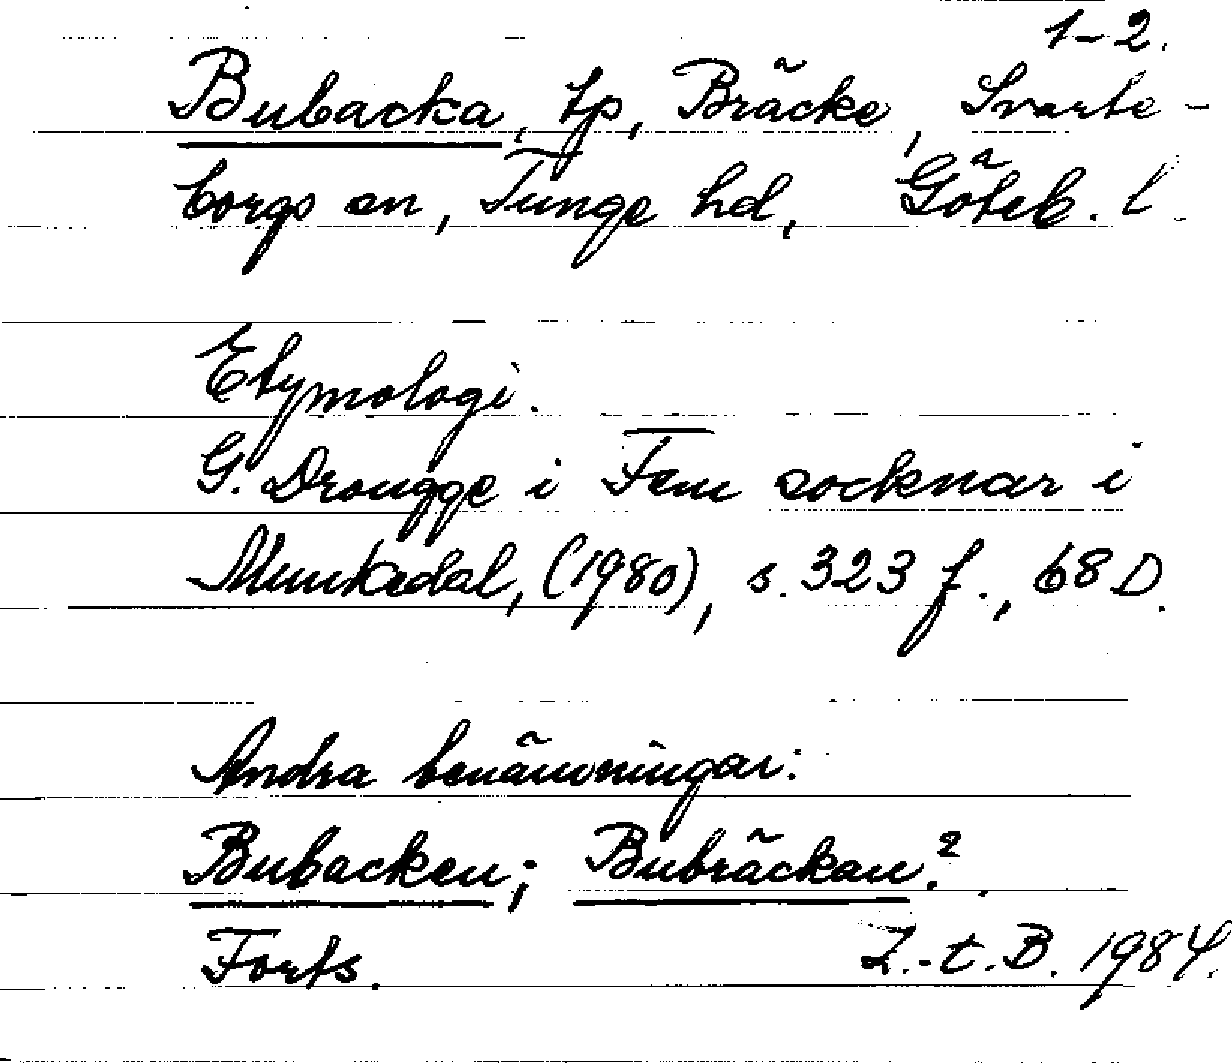 1-2.
Bubacka, tp, Bräcke, Svarte-
borgs sn, Tunge hd, Göteb. l.
Etymologi.
G. Drougge i Fem socknar i
Munkedal, (1980), s. 323 f., 68 D.
Andra benämningar:
Bubacken; Bubräckan?
Forts. L.-t. B. 1984.